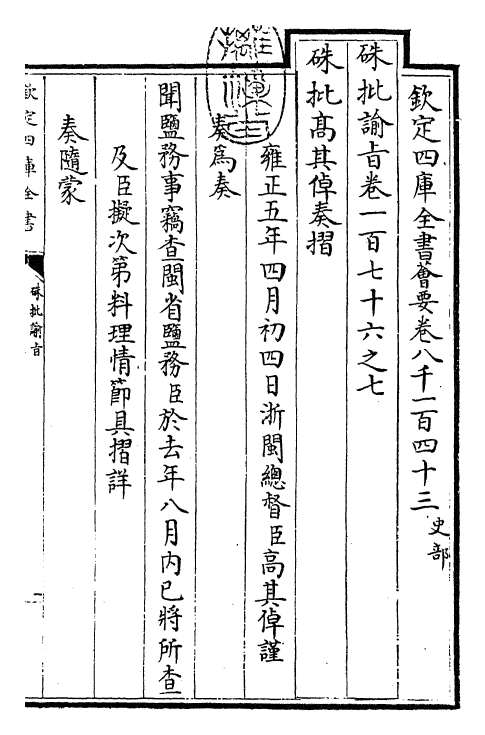 欽定四庫全書薈要卷八千一百四十三 史部
硃批諭旨卷一百七十六之七
硃批高其倬奏摺
雍正五年四月初四日浙閩總督臣高其倬謹
奏為奏
聞鹽務事竊查閩省鹽務臣於去年八月內已將所查
及臣擬次第料理情節具摺詳
奏隨蒙
欽定四庫全書
硃批諭旨
一